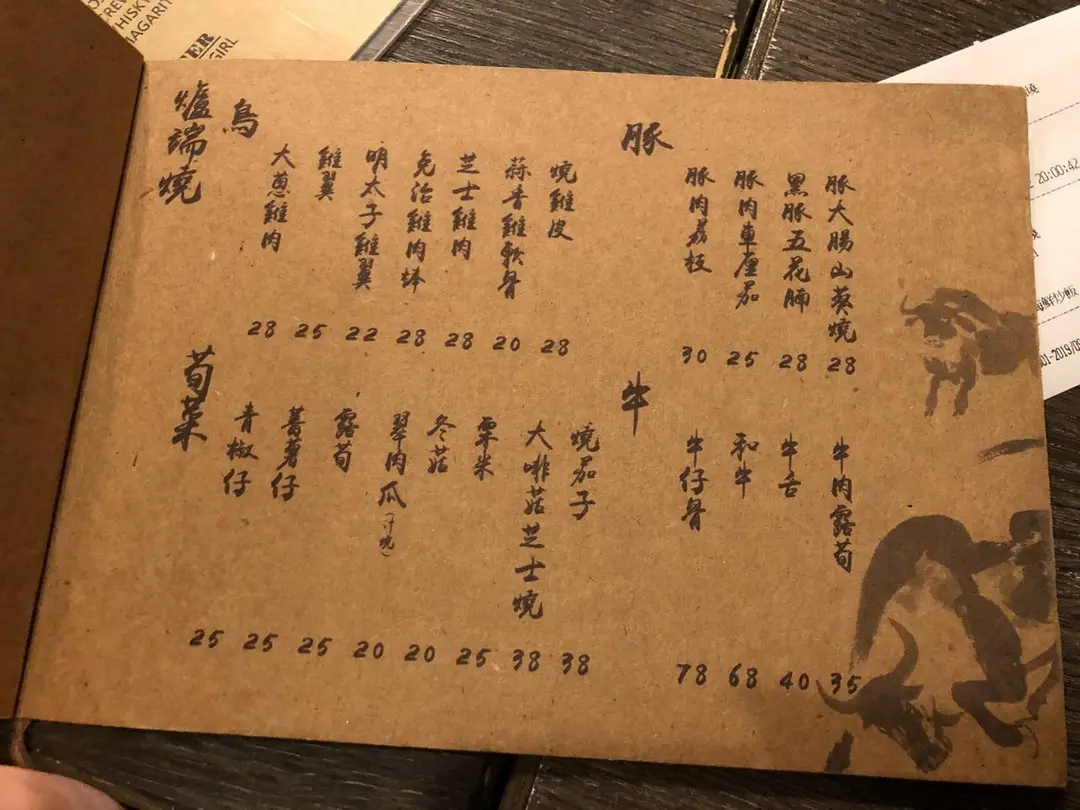 WHISKY
MAGARIT
GIRL
爐端燒
鳥
大蔥雞肉 28
雞翼 25
明太子雞翼 22
免治雞肉棒 28
芝士雞肉 28
蒜香雞軟骨 20
燒雞皮 28
荀菜
青椒仔 25
蕃薯仔 25
露荀 25
翠肉瓜 20
冬菇 20
粟米 25
大啡菇芝士燒 38
燒茄子 38
豚
豚肉荔枝 30
豚肉車厘茄 25
黑豚五花腩 28
豚大腸山葵燒 28
牛
牛仔骨 78
和牛 68
牛舌 40
牛肉露荀 35
燒
20:00:42
燒
海鮮炒飯
01-2019/09